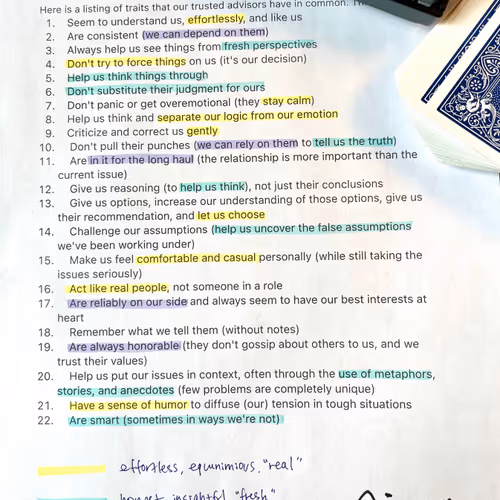 Here is a listing of traits that our trusted advisors have in common.
1. Seem to understand us, effortlessly, and like us
2. Are consistent (we can depend on them)
3. Always help us see things from fresh perspectives
4. Don't try to force things on us (it's our decision)
5. Help us think things through
6. Don't substitute their judgment for ours
7. Don't panic or get overemotional (they stay calm)
8. Help us think and separate our logic from our emotion
9. Criticize and correct us gently
10. Don't pull their punches (we can rely on them to tell us the truth)
11. Are in it for the long haul (the relationship is more important than the
current issue)
12. Give us reasoning (to help us think), not just their conclusions
13. Give us options, increase our understanding of those options, give us
their recommendation, and let us choose
14. Challenge our assumptions (help us uncover the false assumptions
we've been working under)
15. Make us feel comfortable and casual personally (while still taking the
issues seriously)
16. Act like real people, not someone in a role
17. Are reliably on our side and always seem to have our best interests at
heart
18. Remember what we tell them (without notes)
19. Are always honorable (they don't gossip about others to us, and we
trust their values)
20. Help us put our issues in context, often through the use of metaphors,
stories, and anecdotes (few problems are completely unique)
21. Have a sense of humor to diffuse (our) tension in tough situations
22. Are smart (sometimes in ways we're not)
effortless, equanimious, "real"
honest, insightful, "fresh"